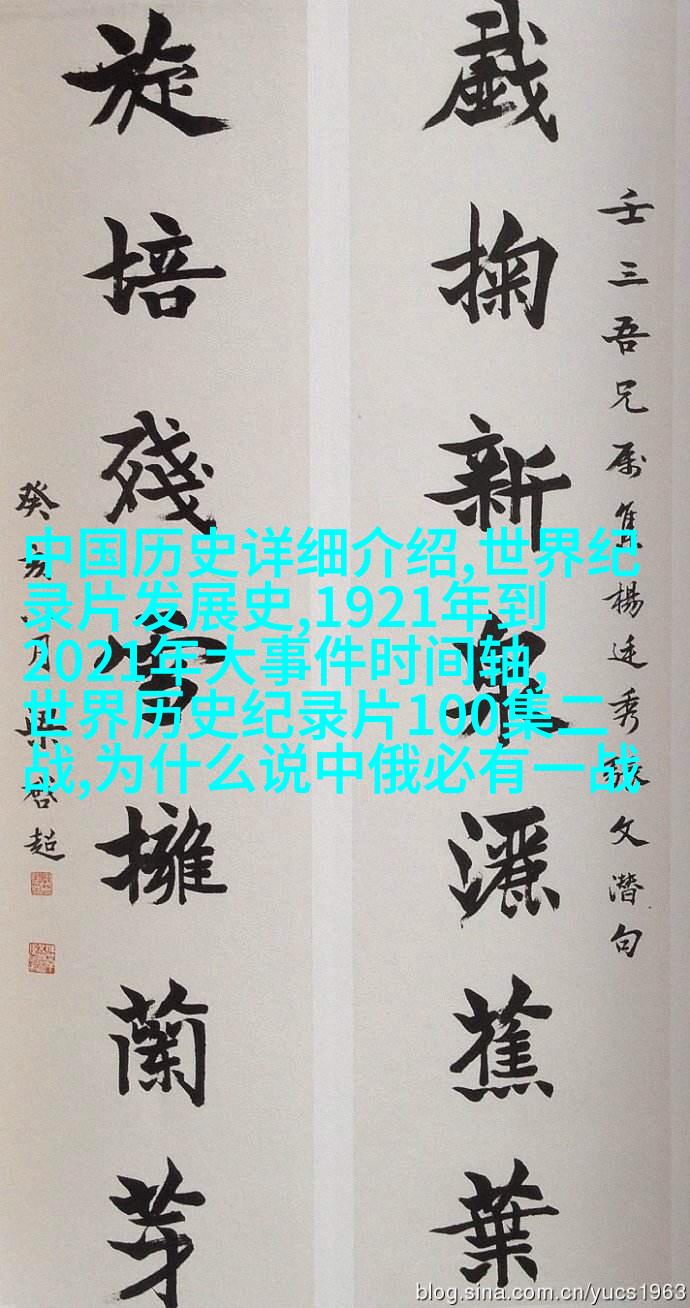 壬三吾兄属集楊廷秀張文潛句
戲掬新泉灑蕉葉
旋培殘雪擁蘭芽
癸亥八月梁啓超
中国历史详细介绍,世界纪
录片发展史,1921年到
2021年大事件时间轴,
世界历史纪录片100集二
战,为什么说中俄必有一战
blog.sina.com.cn/yucs1963